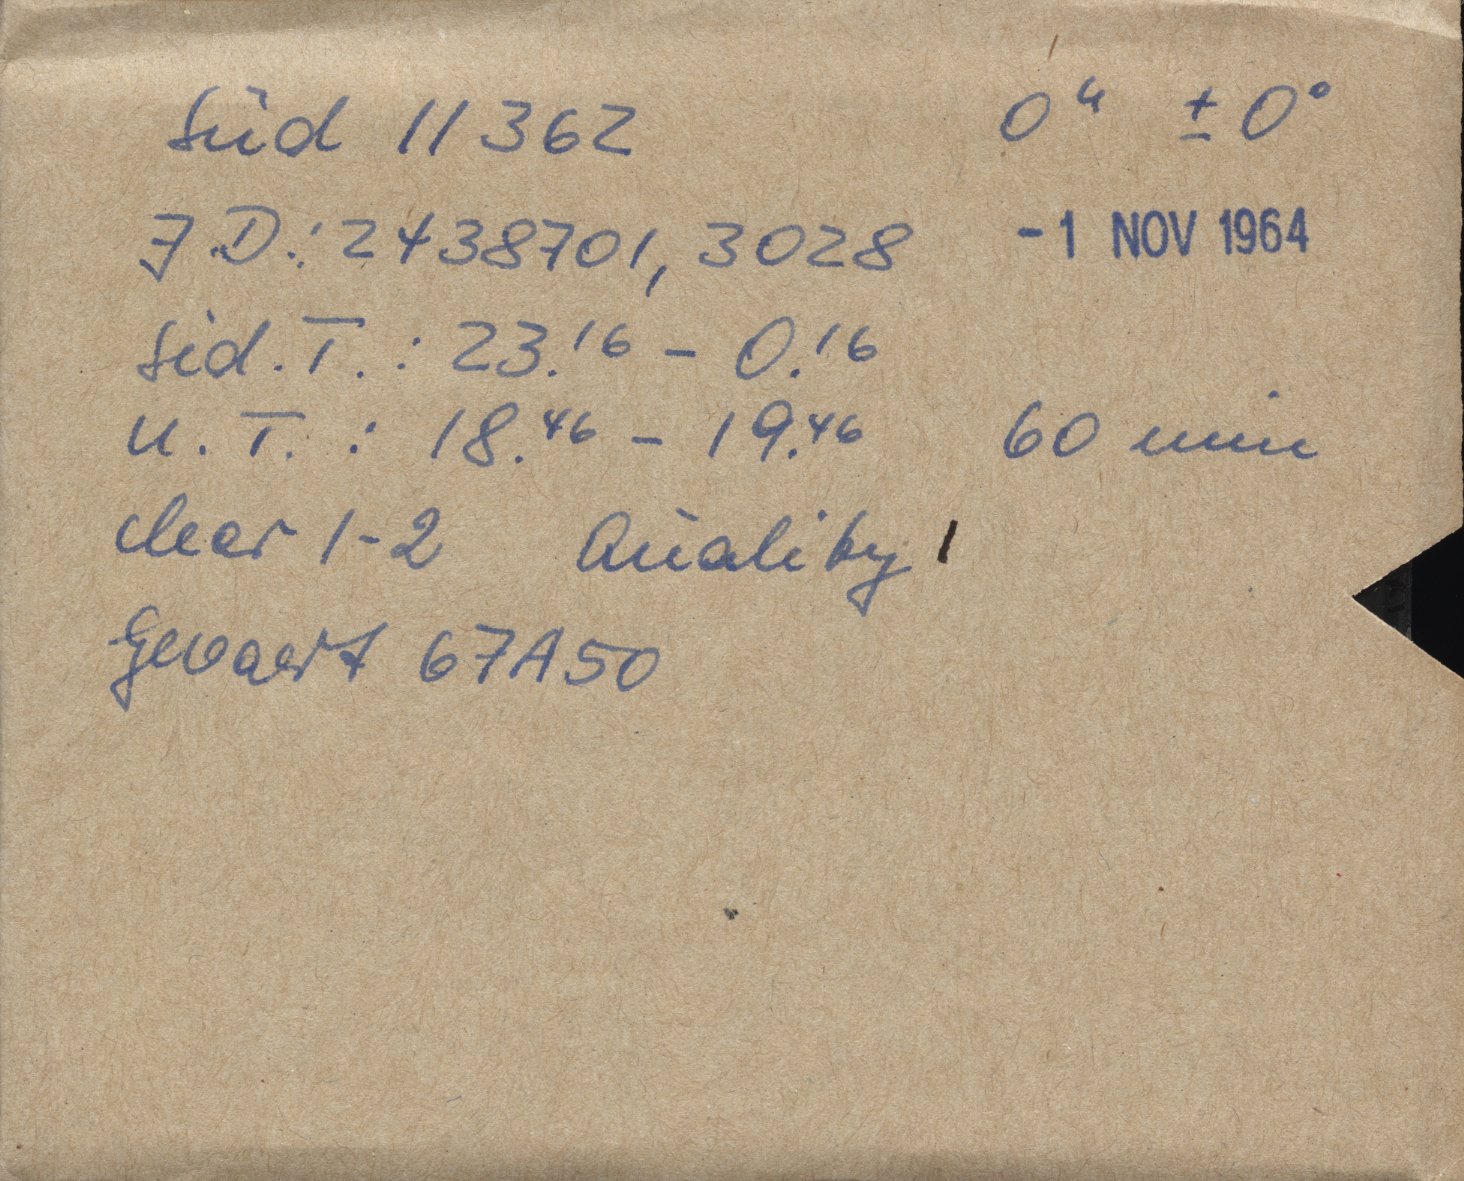 Süd 11362 0ʰ ± 0°
J.D.: 2438701,3028 -1 NOV 1964
Sid.T.: 23.¹⁶ - 0.¹⁶
U.T.: 18.⁴⁶ - 19.⁴⁶ 60 min
clear 1-2 Quality 1
Gevaert 67A50